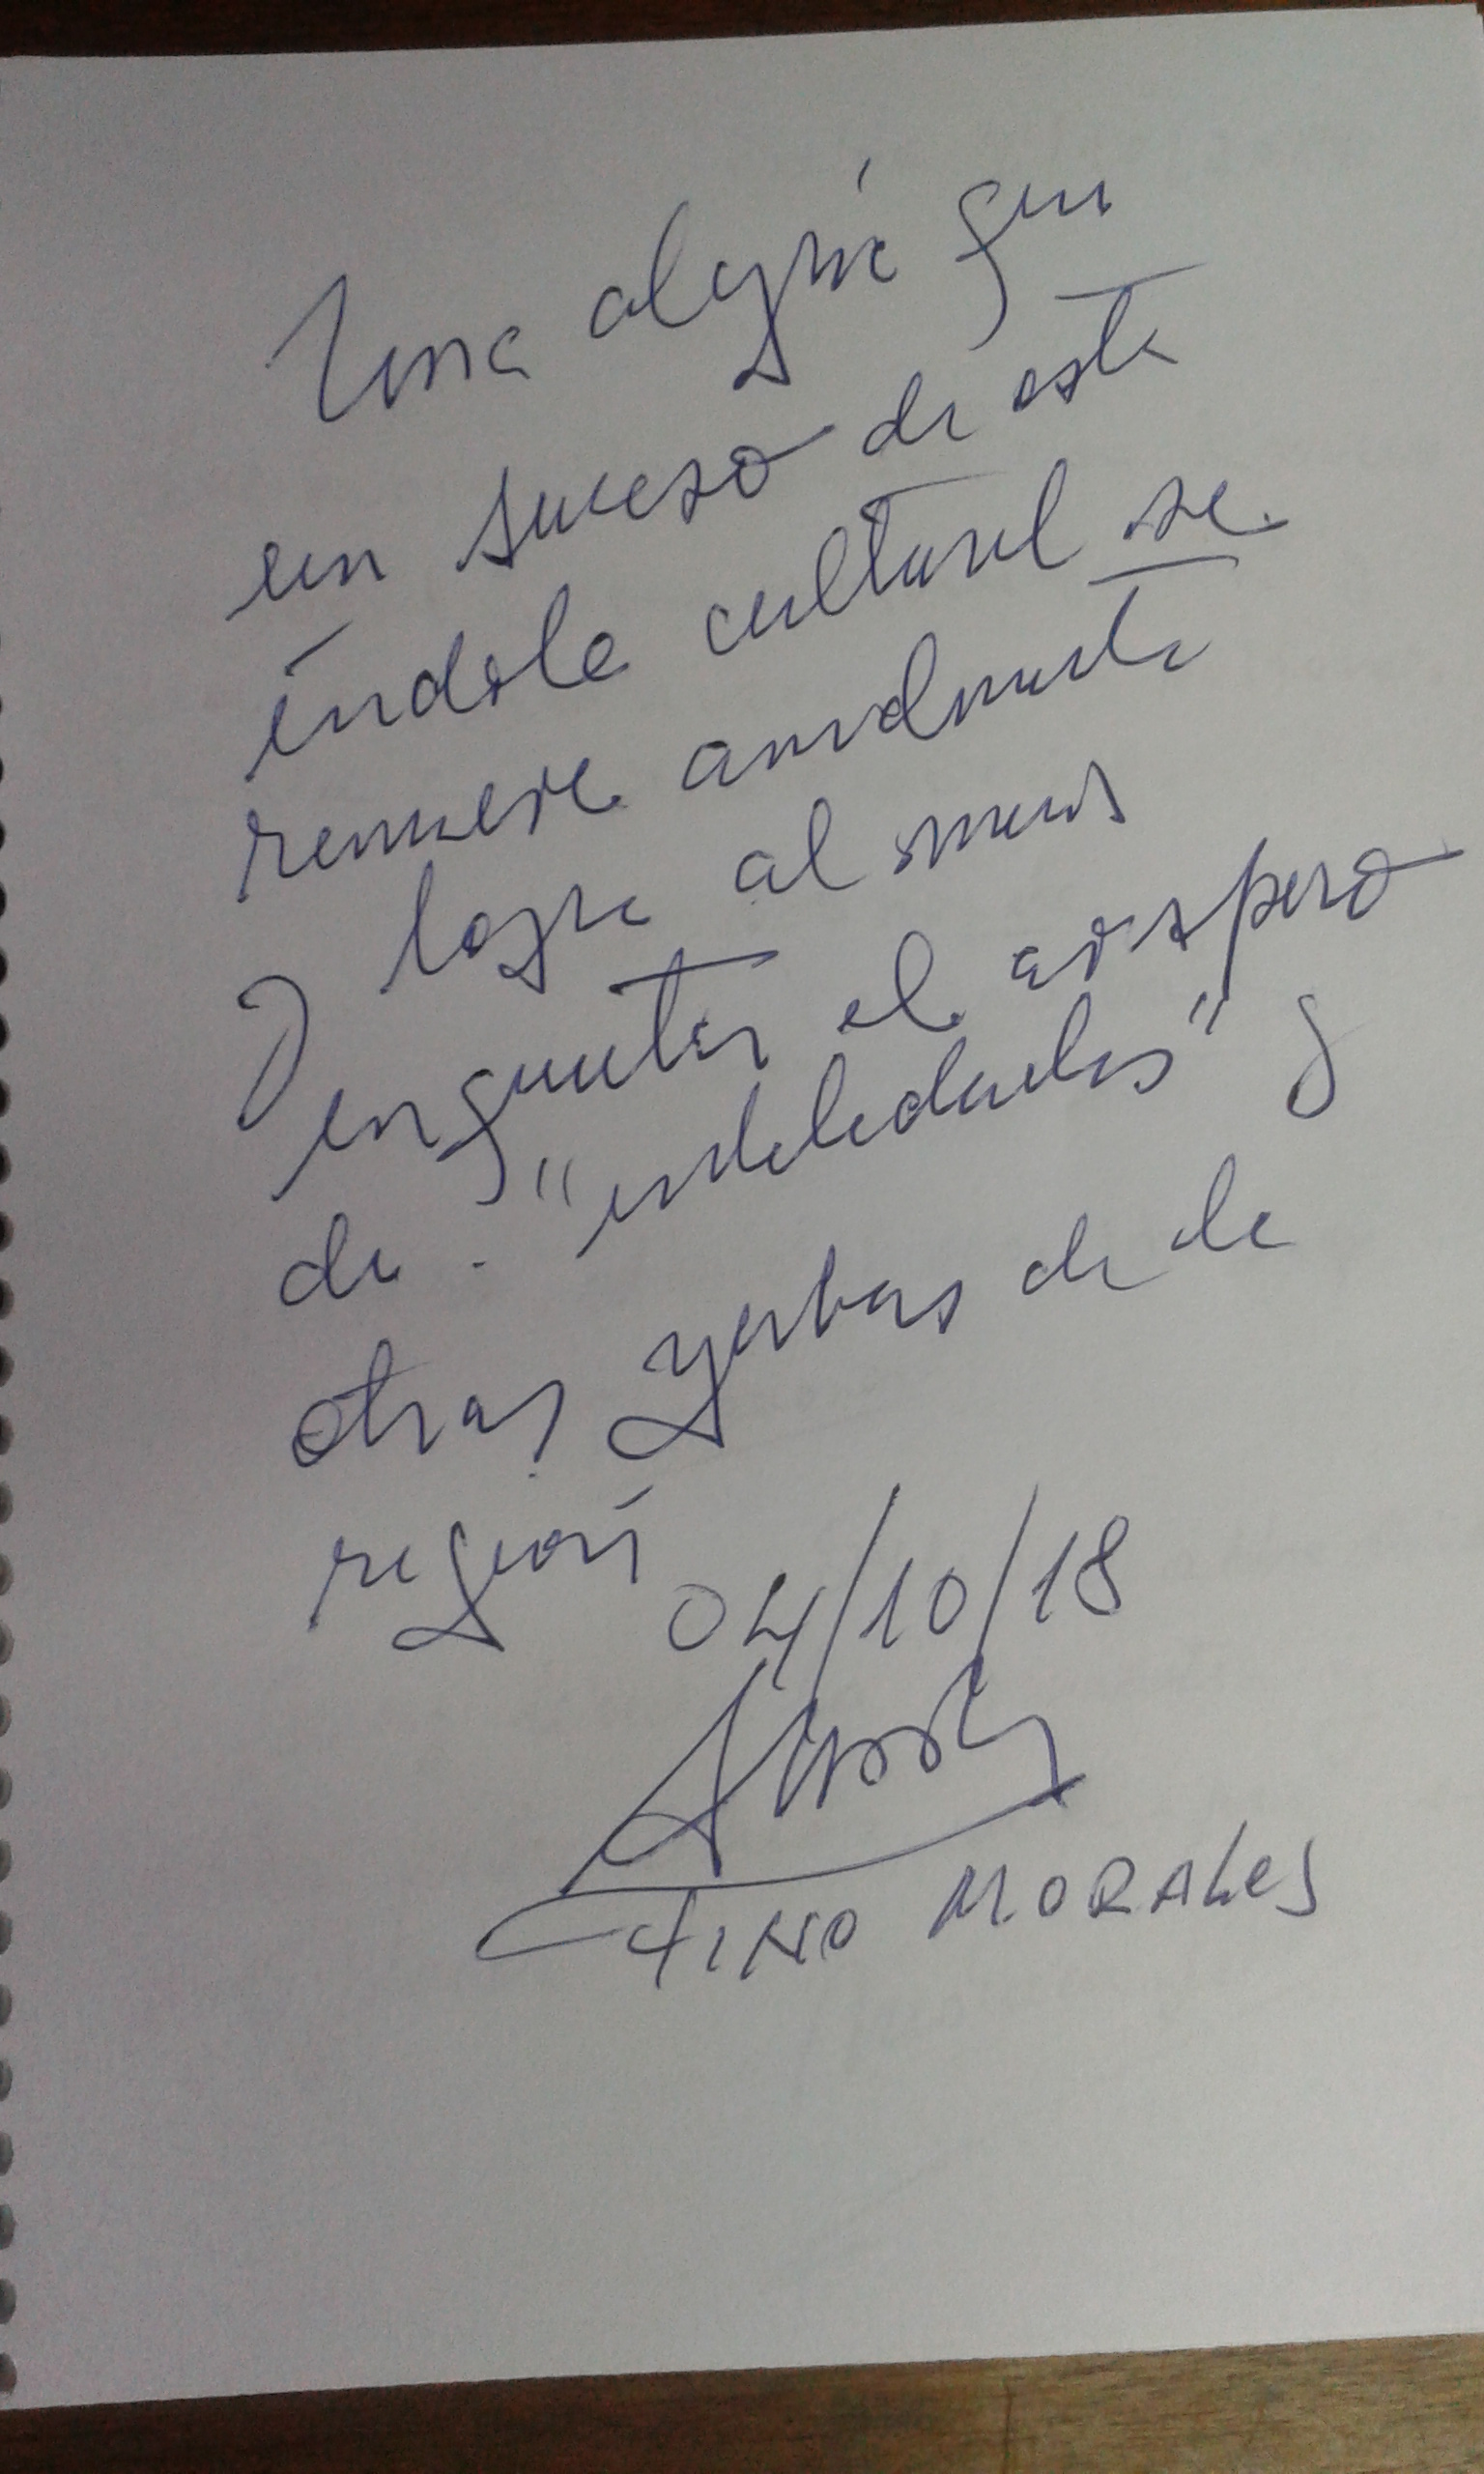 Una alegría que
un suceso de esta
índole cultural se
renueve anualmente
y logre al menos
inquietar el avispero
de "intelectuales" y
otras yerbas de la
región
04/10/18
TINO MORALES